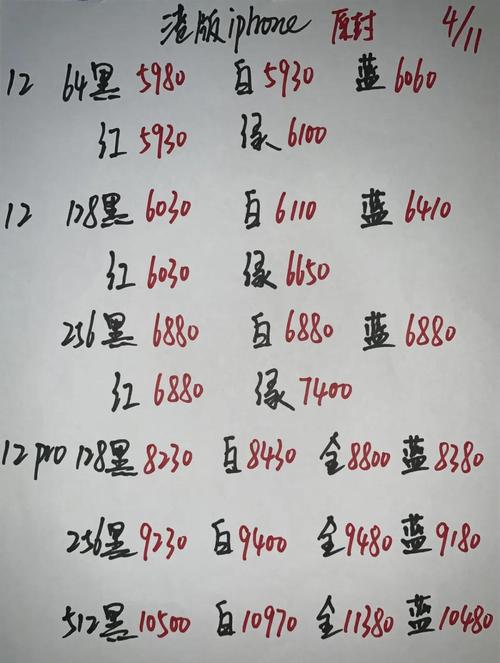 港版iphone 原封 4/11
12 64黑 5980 白5930 蓝6060
红5930 绿6100
12 128黑 6030 白6110 蓝6410
红6030 绿6650
256黑 6880 白6880 蓝6880
红6880 绿7400
12 pro 128黑 8230 白8430 金8800 蓝8380
256黑 9230 白9400 金9480 蓝9180
512黑 10500 白10970 金11380 蓝10480